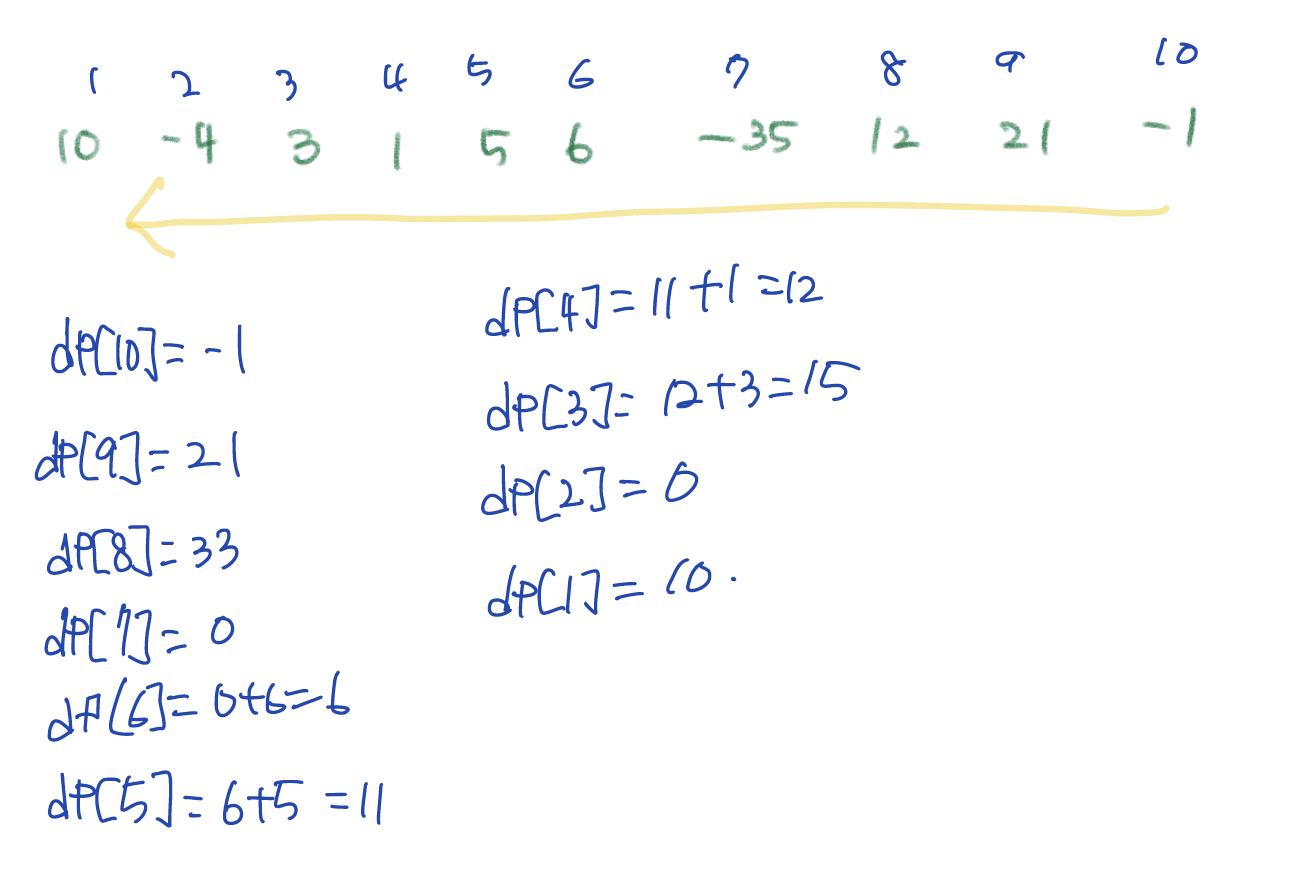 1 2 3 4 5 6 7 8 9 10
10 -4 3 1 5 6 -35 12 21 -1
dP[10]= -1
dP[9]= 21
dP[8]= 33
dP[7]= 0
dP[6]= 0+6=6
dP[5]= 6+5 =11
dP[4]= 11+1 =12
dP[3]= 12+3=15
dP[2]= 0
dP[1]= 10.